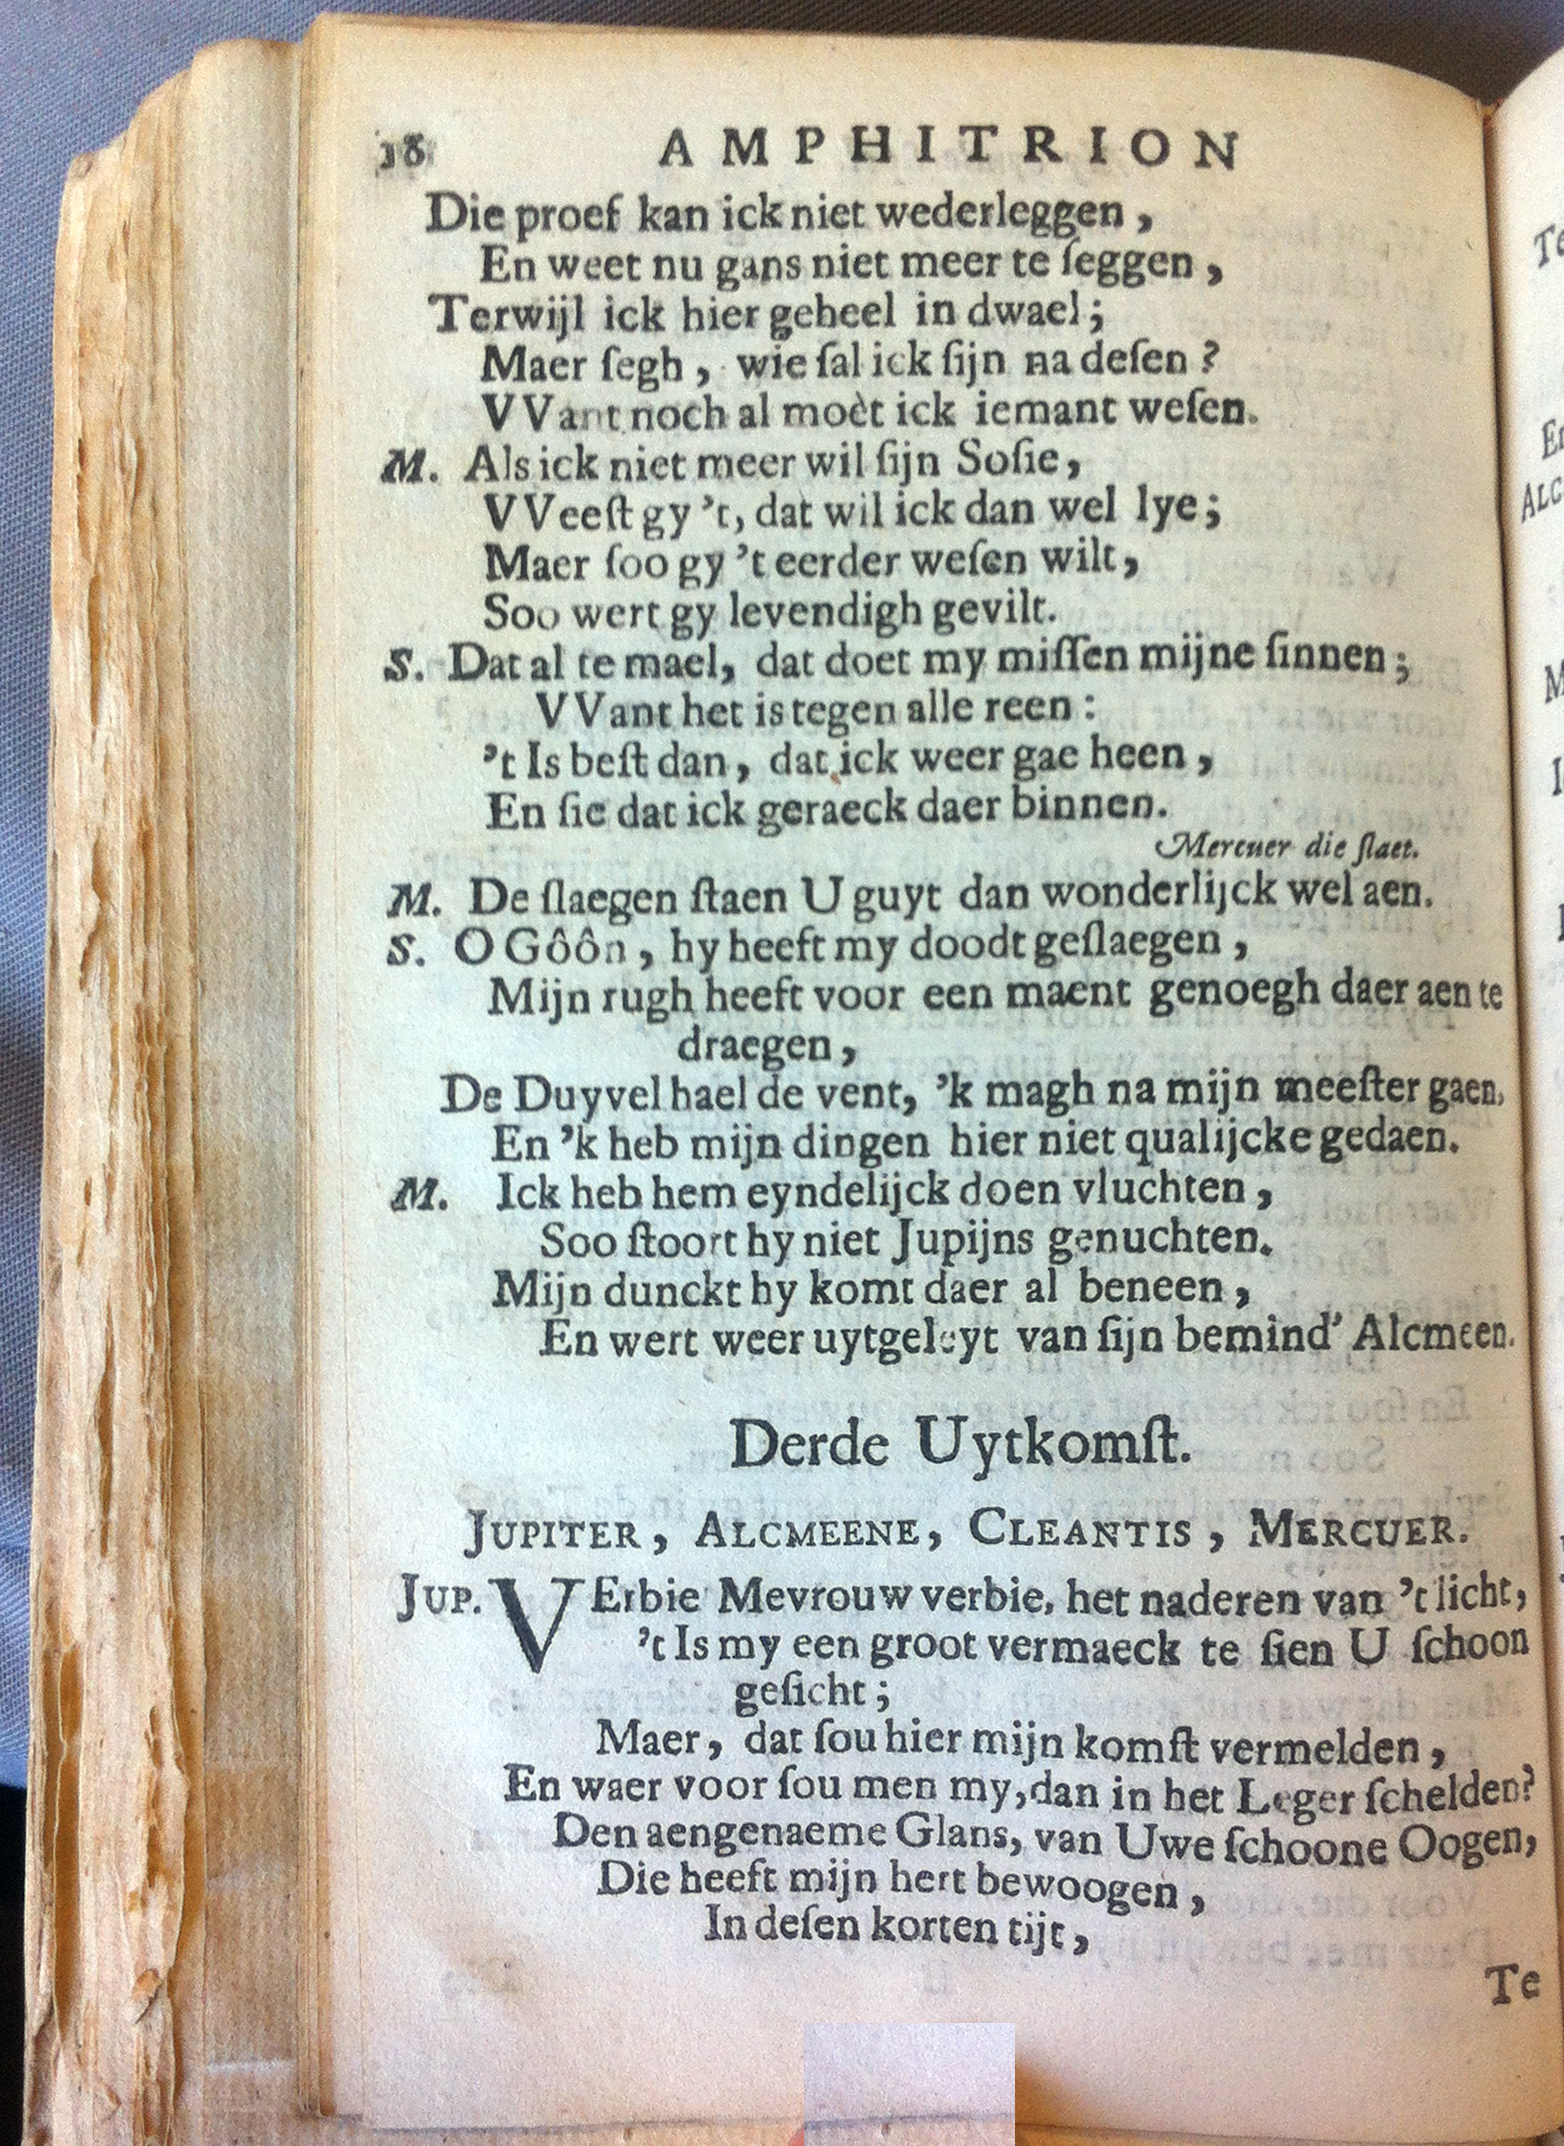 18 AMPHITRION
Die proef kan ick niet wederleggen,
En weet nu gans niet meer te ſeggen,
Terwijl ick hier geheel in dwael;
Maer ſegh, wie ſal ick ſijn na deſen?
VVant noch al moèt ick iemant weſen.
M. Als ick niet meer wil ſijn Soſie,
VVeeſt gy 't, dat wil ick dan wel lye;
Maer ſoo gy 't eerder weſen wilt,
Soo wert gy levendigh gevilt.
S. Dat al te mael, dat doet my miſſen mijne ſinnen;
VVant het is tegen alle reen:
't Is beſt dan, dat ick weer gae heen,
En ſie dat ick geraeck daer binnen.
Mercuer die ſlaet.
M. De ſlaegen ſtaen U guyt dan wonderlijck wel aen.
S. O Gôôn, hy heeft my doodt geſlaegen,
Mijn rugh heeft voor een maent genoegh daer aen te
draegen,
De Duyvel hael de vent, 'k magh na mijn meeſter gaen,
En 'k heb mijn dingen hier niet qualijcke gedaen.
M. Ick heb hem eyndelijck doen vluchten,
Soo ſtoort hy niet Jupijns genuchten.
Mijn dunckt hy komt daer al beneen,
En wert weer uytgeleyt van ſijn bemind' Alcmeen.
Derde Uytkomſt.
JUPITER, ALCMEENE, CLEANTIS, MERCUER.
JUP. VErbie Mevrouw verbie, het naderen van 't licht,
't Is my een groot vermaeck te ſien U ſchoon
geſicht;
Maer, dat ſou hier mijn komſt vermelden,
En waer voor ſou men my, dan in het Leger ſchelden?
Den aengenaeme Glans, van Uwe ſchoone Oogen,
Die heeft mijn hert bewoogen,
In deſen korten tijt,
Te